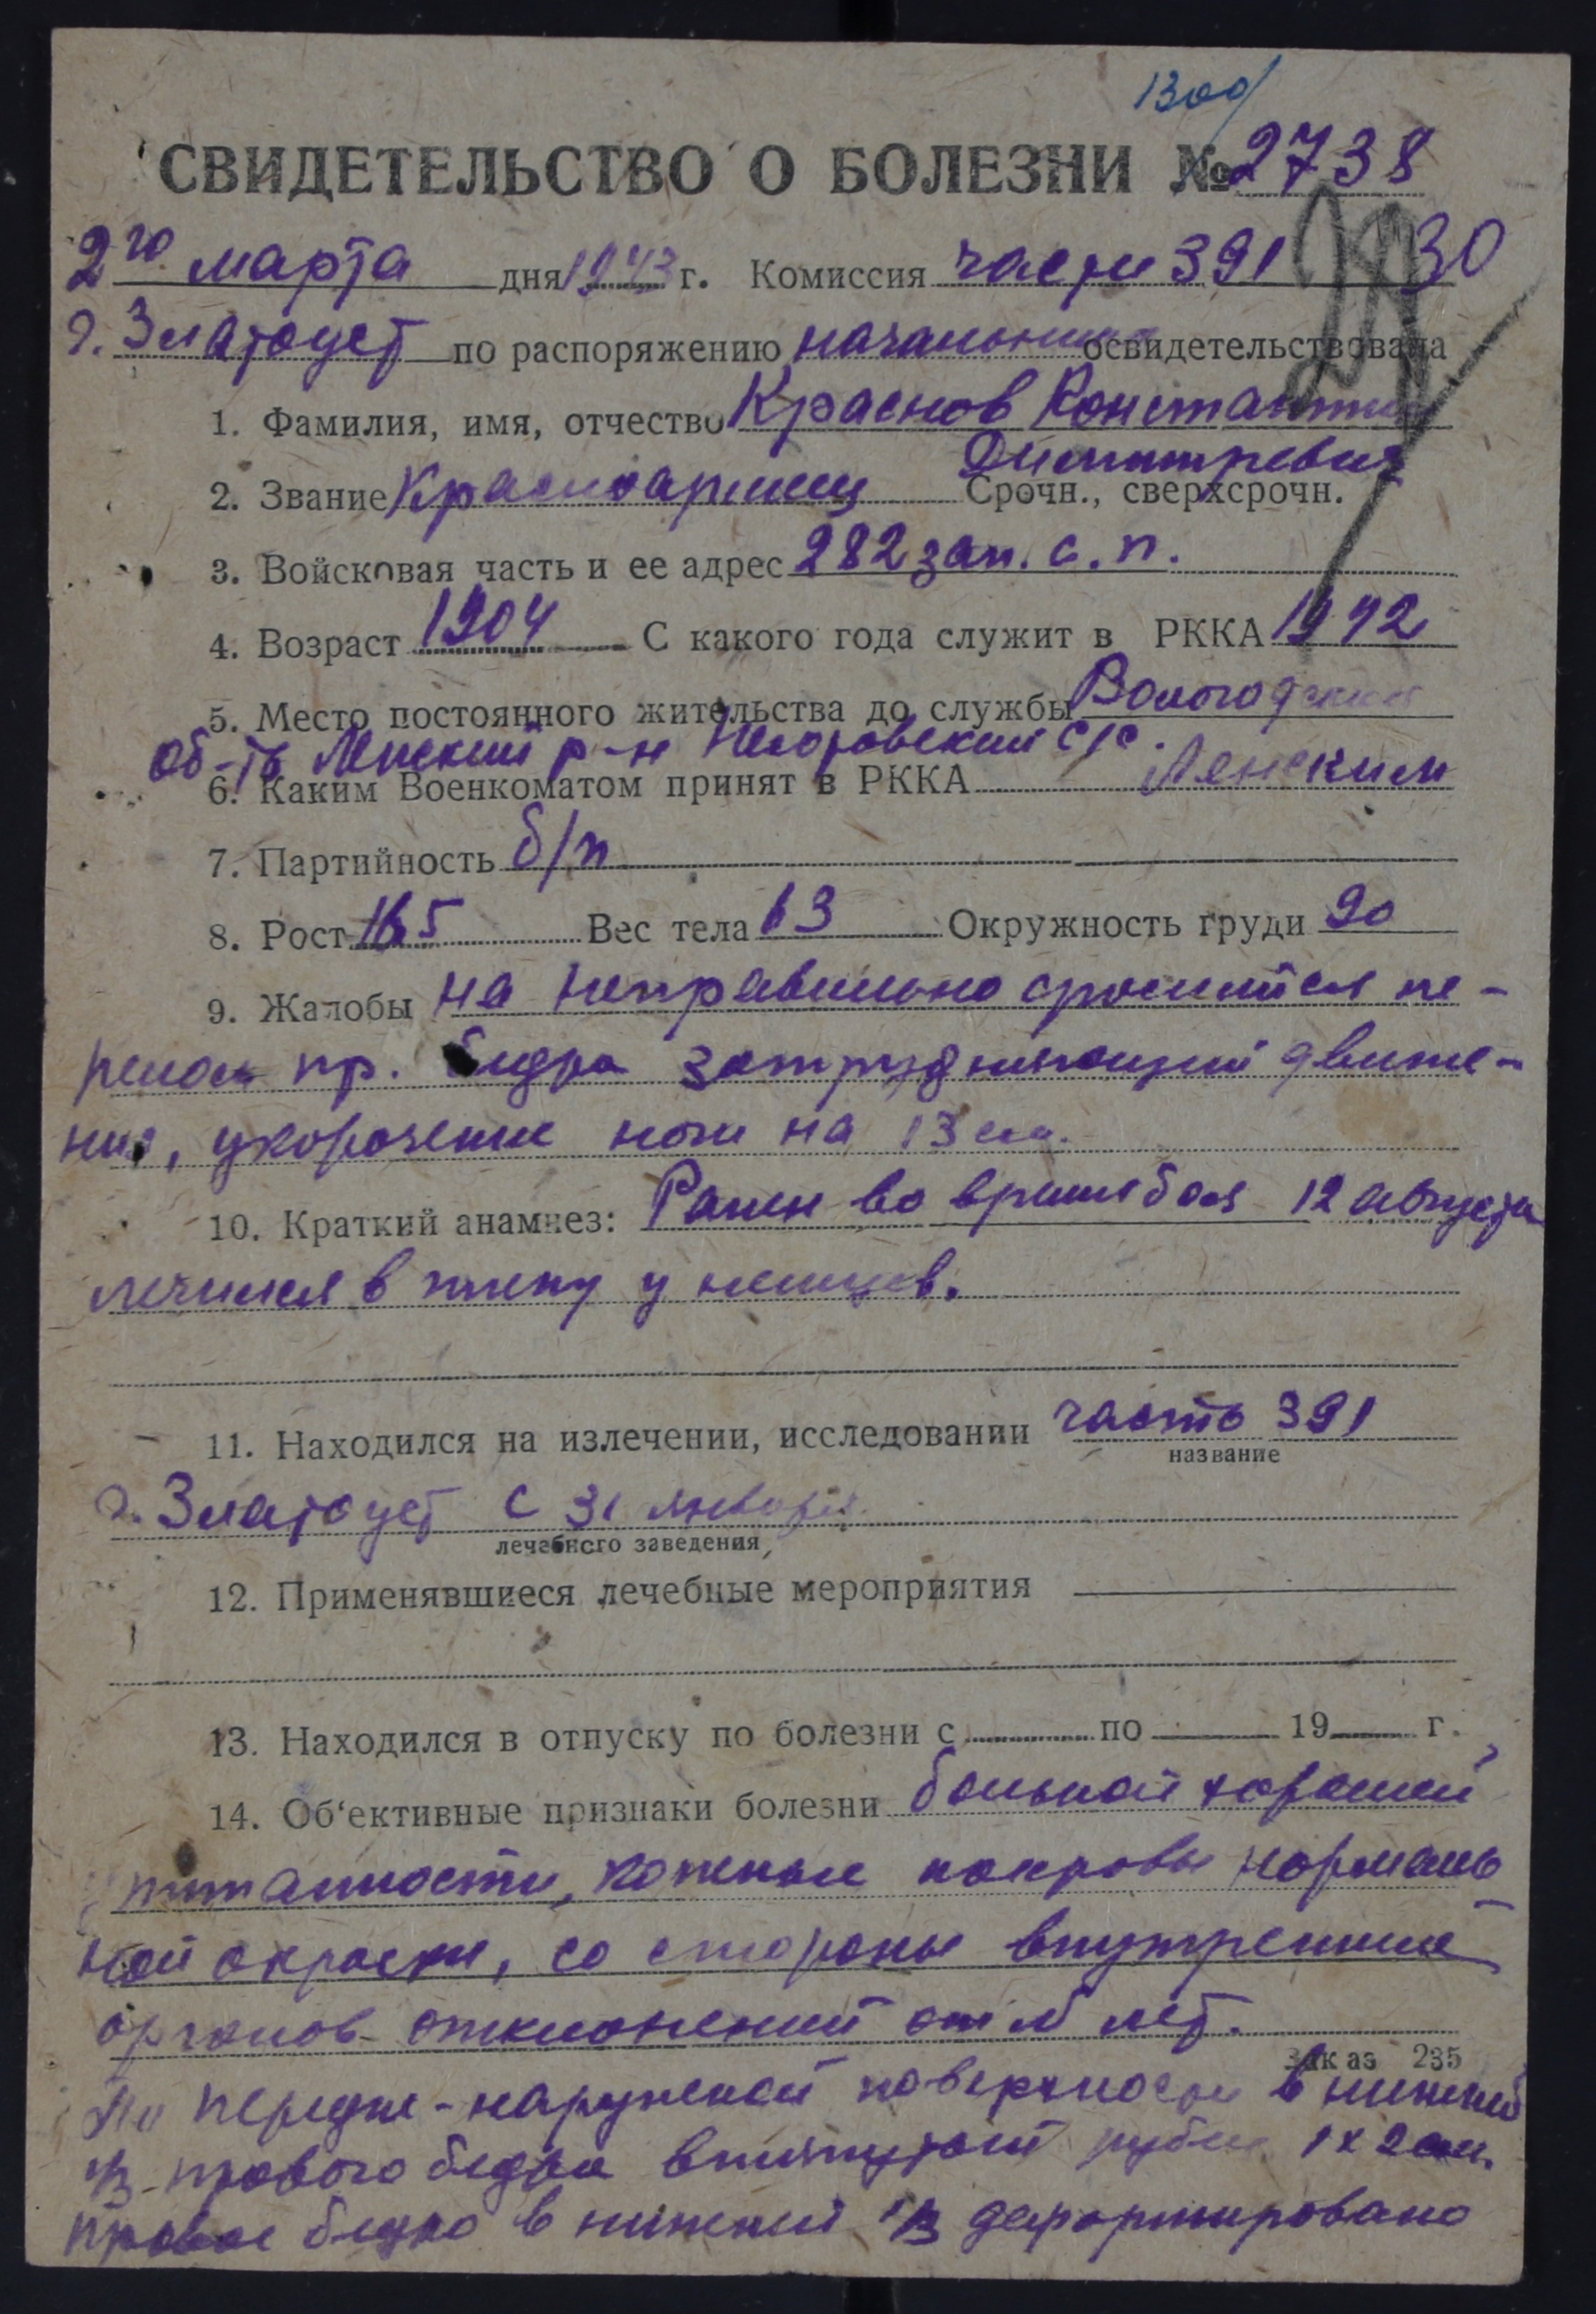 1300/
СВИДЕТЕЛЬСТВО О БОЛЕЗНИ № 2738
2го марта дня 1943 г. Комиссия части 391 30
г. Златоуст по распоряжению начальника освидетельствовала
1. Фамилия, имя, отчество Краснов Константин
Димитревич
2. Звание Красноармеец Срочн., сверхсрочн.
3. Войсковая часть и ее адрес 282 зап. с. п.
4. Возраст 1904 С какого года служит в РККА 1942
5. Место постоянного жительства до службы Вологодская
об-ть Ленский р-н с/с.
6. Каким Военкоматом принят в РККА Ленским
7. Партийность б/п
8. Рост 165 Вес тела 63 Окружность груди 90
9. Жалобы на неправильно сросшийся пе-
релом пр. бедра затрудняющий движе-
ния, укорочение ноги на 13 см.
10. Краткий анамнез: Ранен во время боя 12 августа
лечился в плену у немцев.
11. Находился на излечении, исследовании часть 391
название
г. Златоуст с 31 января
лечебного заведения
12. Применявшиеся лечебные мероприятия
13. Находился в отпуску по болезни с по 19 г.
14. Об‘ективные признаки болезни больной хорошей
питанности, кожные покровы нормаль
ной окраски, со стороны внутренних
органов отклонений от N нет.
Заказ 235
По передне-наружной поверхности в нижней
1/3 правого бедра втянутый рубец 1х2 см.
Правое бедро в нижней 1/3 деформировано